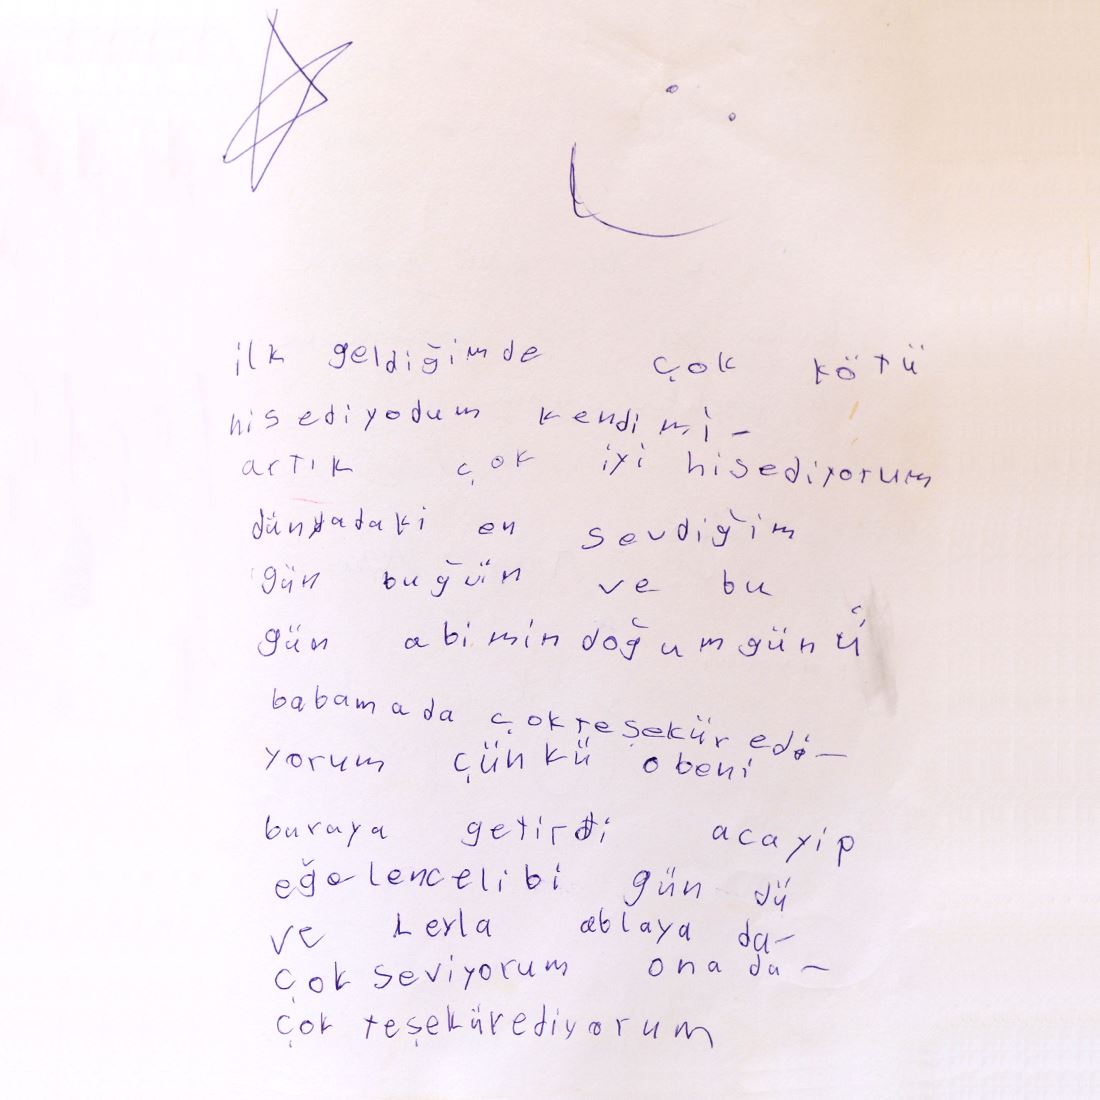 ilk geldiğimde çok kötü
hisediyodum kendimi-
artık çok iyi hisediyorum
dünyadaki en sevdiğim
gün buğün ve bu
gün abimin doğum günü
babamada çok teşekür edi-
yorum çünkü obeni
buraya getirdi acayip
eğelenceli bi gün dü
ve Lerla ablaya da-
çok seviyorum ona da-
çok teşekürediyorum